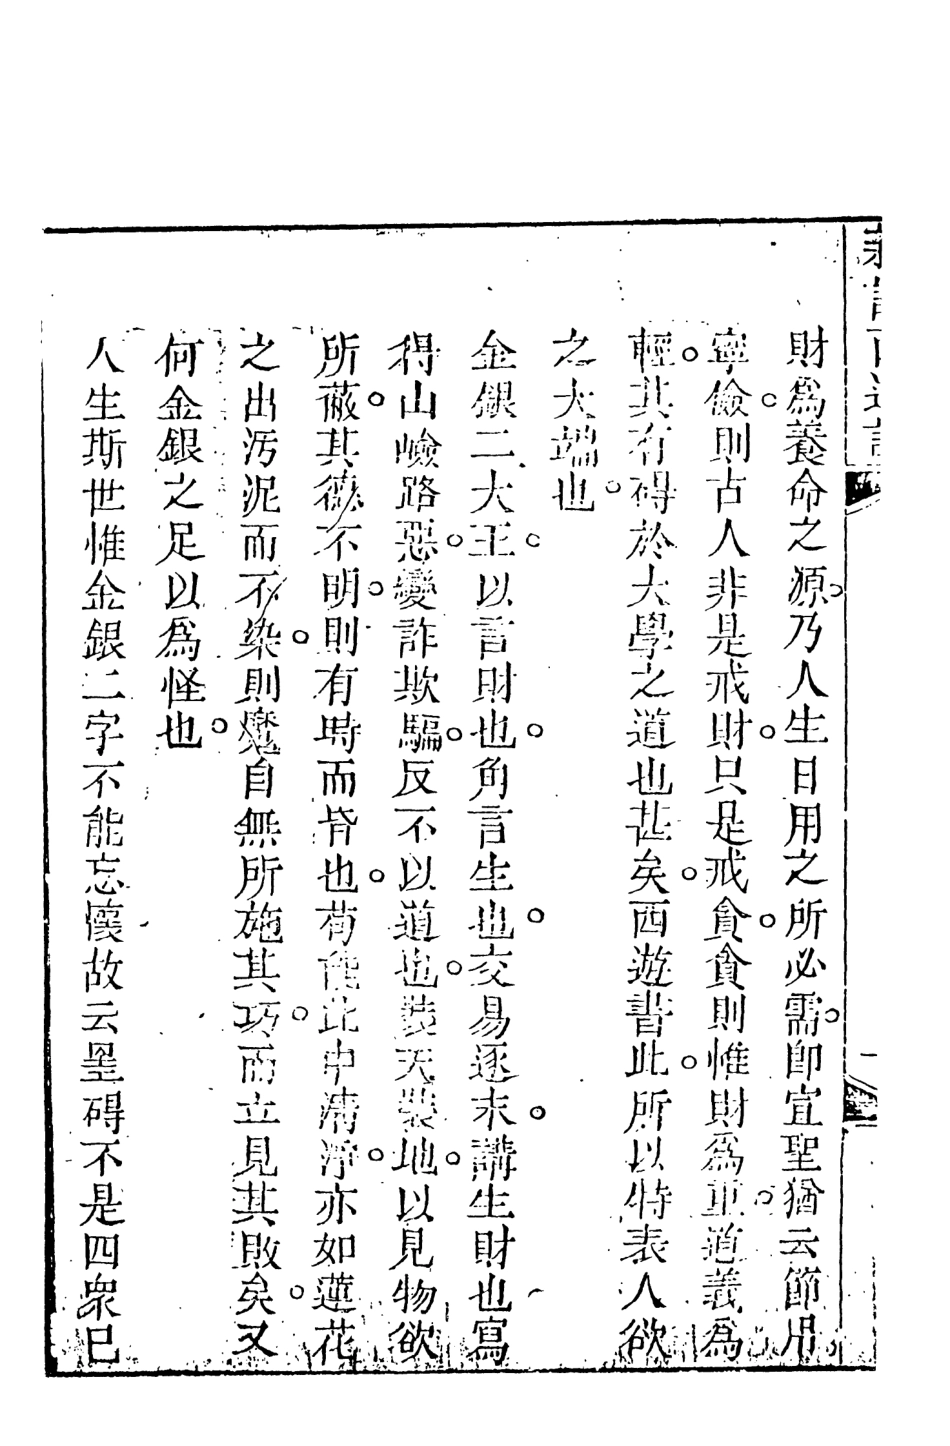 財爲養命之源。乃人生日用之所必需。卽宣聖猶云節用。
寧儉。則古人非是戒財。只是戒貪。貪則惟財爲重。道義爲
輕。其有碍於大學之道也甚矣。西遊書此。所以特表人欲
之大端也。
金銀二大王。以言財也。角言生也。交易逐末。講生財也。寫
得山嶮路惡。變詐欺騙。反不以道也。裝天裝地。以見物欲
所蔽。其德不明。則有時而昏也。苟能此中清淨。亦如蓮花
之出汚泥而不染。則魔自無所施其巧。而立見其敗矣。又
何金銀之足以爲怪也。
人生斯世惟金銀二字不能忘懷故云罣碍不是四衆已